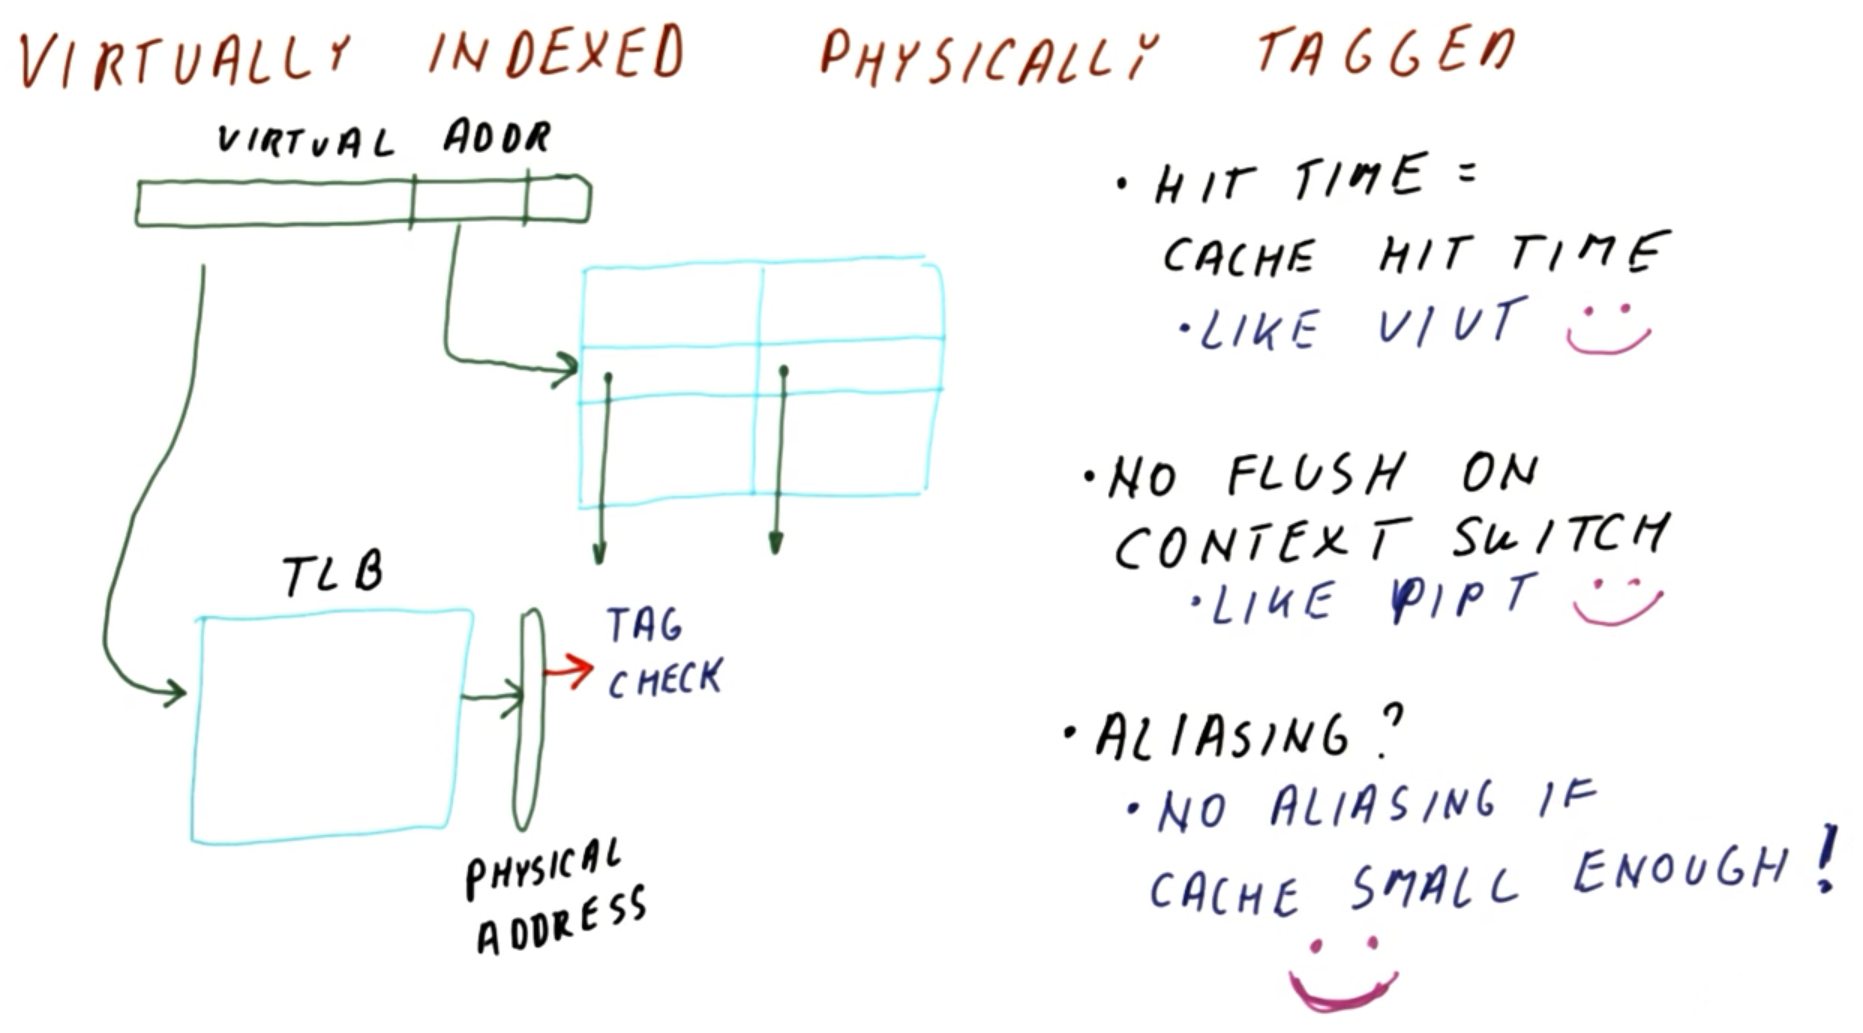 VIRTUALLY INDEXED PHYSICALLY TAGGED
VIRTUAL ADDR
TLB
TAG
CHECK
PHYSICAL
ADDRESS
• HIT TIME =
CACHE HIT TIME
• LIKE VIVT
• NO FLUSH ON
CONTEXT SWITCH
• LIKE PIPT
• ALIASING?
• NO ALIASING IF
CACHE SMALL ENOUGH!